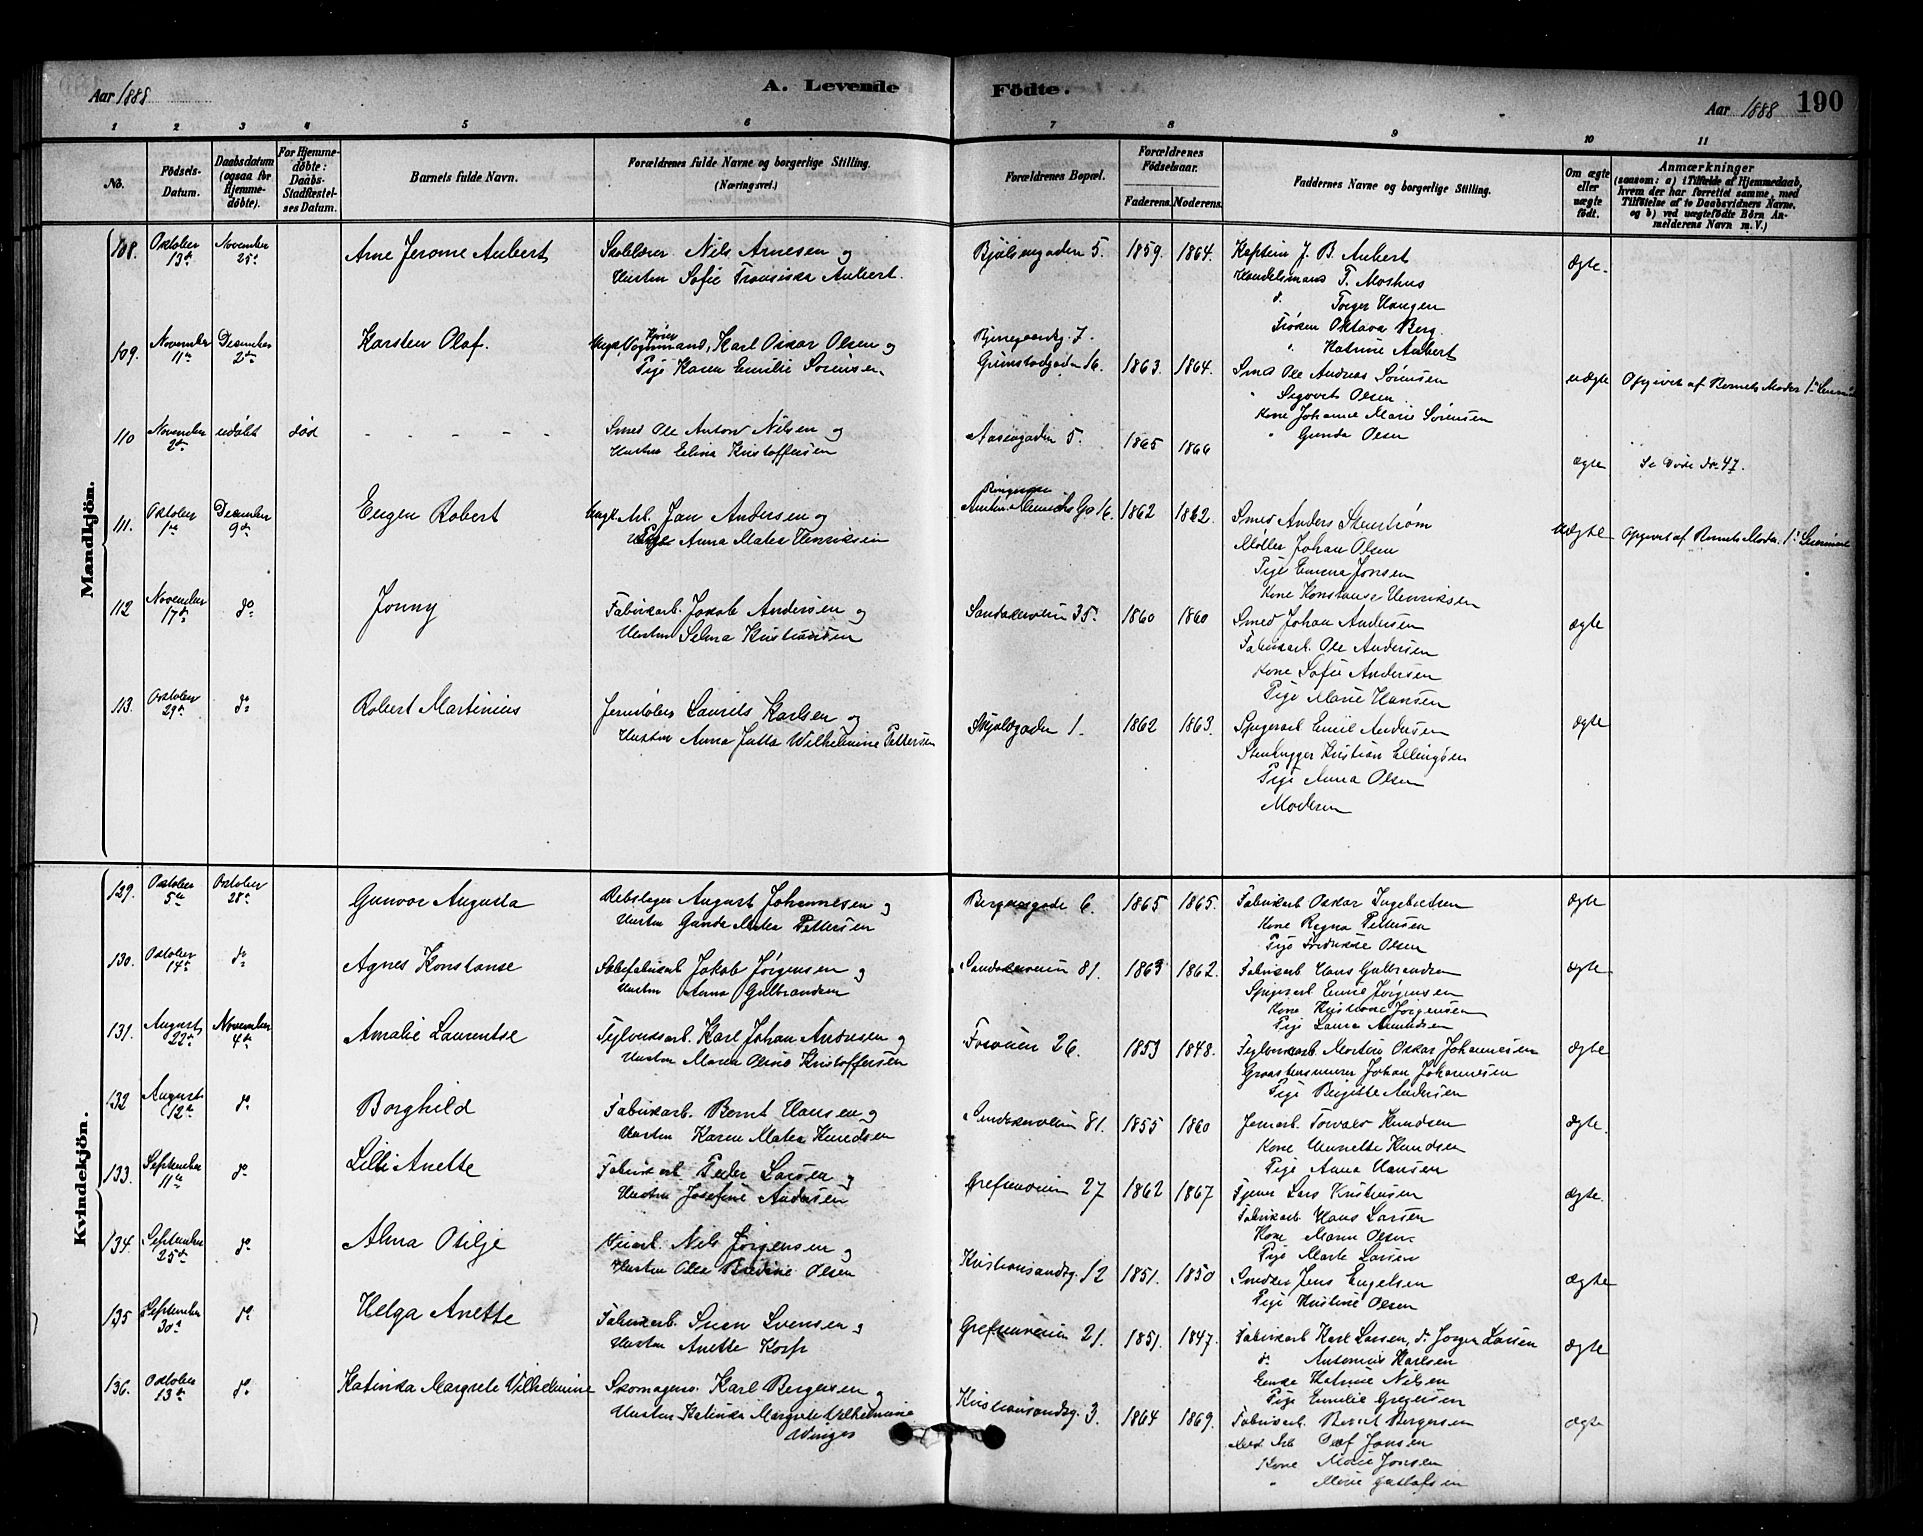 Aar 1888
A. Levende Födte.
Aar 1888 190
1 2 3 4 5 6 7 8 9 10 11
No.
Födsels-Datum.
Daabsdatum (ogsaa for Hjemmedøbte).
For Hjemmedøbte: Daabs-Stadfæstelses Datum.
Barnets fulde Navn.
Forældrenes fulde Navne og borgerlige Stilling. (Næringsvei.)
Forældrenes Bopæl.
Forældrenes Födselsaar.
Faderens. Moderens.
Faddernes Navne og borgerlige Stilling.
Om ægte eller uægte födt.
Anmærkninger (saasom: a) i Tilfælde af Hjemmedaab, hvem der har forrettet samme, med Tilföielse af to Daabsvidners Navne, og b) ved uægtefödte Börn Anmelderens Navn m. V.)
Mandkjön.
108. Oktober 13de November 25de Arne Jerome Aubert
Skolelærer Nils Arnesen og
Hustru Sofie Fransiska Aubert.
Bjölsengaden 5. 1859. 1864.
Kaptein J. B. Aubert
Handelsmand T. Moshus
do. Torger Haugen
Frøken Oktava Berg.
" Katrine Aubert
ægte.
109. November 11te December 2den Karsten Olaf.
Karl Oskar Olsen og
Pige Karen Emilie Sörensen
Grimstadgaden 16. 1863. 1864.
Smed Ole Andreas Sörensen
" Olsen
Kone Johanne Marie Sörensen
" Gunda Olsen
uægte Opgivet af Barnets Moder 1ste Leiermaal
110 November 2den udöbt död - - - - -
Smed Ole Anton Nilsen og
Hustru Elina Kristoffersen
Aasengaden 5. 1865 1866
ægte Se Döde No. 47.
111. Oktober 1ste December 9de Eugen Robert
Ungk. Arb. Jan Andersen og
Pige Anna Matea Henriksen
1862 1862.
Smed Anders Stenström
Møller Johan Olsen
Pige Emma Jonsen
Kone Konstanse Henriksen
Uægte Opgivet af Barnets Moder. 1ste Leiermaal
112 November 17de do Jonny
Fabrikarb. Jakob Andersen og
Hustru Selma Kristiansen
Sandakerveien 35. 1860 1860
Smed Johan Andersen
Fabrikarb. Ole Andersen
Kone Sofie Andersen
Pige Marie Hansen
ægte
113. Oktober 29de do Robert Martinius
Jernstöber Laurits Karlsen og
Hustru Anna Jutta Wilhelmine Pettersen
Skjoldgaden 1. 1862 1863.
Spigerarb Emil Andersen
Stenhugger Kristian Ellingsen
Pige Anna Olsen
Moderen
ægte
Kvindekjön.
129. Oktober 5te Oktober 28de Gunvor Augusta
Rebslager August Johannesen og
Hustru Gunda Matea Pettersen
Bergensgade 6. 1865 1865.
Fabrikarb Oskar Ingebretsen
Kone Ragna Pettersen
Pige Fredrikke Olsen
ægte
130. Oktober 14de do Agnes Konstanse
Jakob Jørgensen og
Hustru Anna Gulbrandsen
Sandakerveien 81. 1863 1862.
Fabrikarb Hans Gulbrandsen
Spigerarb Emil Jörgensen
Kone Kristiane Jørgensen
Pige Laura Amundsen
ægte
131. August 22de November 4de Amalie Laurentse
Teglverksarb. Karl Johan Andresen og
Hustru Maria Kristoffersen
26. 1853 1848.
Teglverksarb Martin Oskar Johannesen
Graastensmurer Johan Johannesen
Pige Birgitte Andersen
ægte
132 August 12te do Borghild
Fabrikarb. Bernt Hansen og
Hustru Karen Matea Knudsen
Sandakerveien 81. 1855 1860
Jernarb. Torvald Knudsen
Kone Knudsen
Pige Anna Hansen
ægte.
133. September 11te do Lilli Anette
Fabrikarb Peder Larsen og
Hustru Josefine Andersen
Grefsenveien 27 1862 1867
Lars Kristensen
Fabrikarb. Hans Larsen
Kone Maren Olsen
Pige Marte Larsen
ægte.
134. September 25de do Alma Otilje
Veiarb. Nils Jørgensen og
Hustru Olea Bredine Olsen
Kristiansandsg. 12 1851. 1850
Snedker Jens Engelsen
Pige Kristine Olsen
ægte
135 September 30de do Helga Anette
Fabrikarb. Sven Svensen og
Hustru Anette Korp
Grefsenveien 21. 1851. 1847.
Fabrikarb Karl Larsen, do Jørgen Larsen
do Antonius Karlsen
Enke Katrine Nilsen
Pige Emilie Gregersen
ægte
136. Oktober 13de do Katinka Margrete Vilhelmine
Skomagersv. Karl Bergersen og
Hustru Katinka Margrete Vilhelmine Winges
Kristiansandsg. 3. 1864 1869.
Fabrikarb. Bernt Bergersen
Arb Olaf Jonsen
Kone Marie Jonsen
" Marie Gustafsen
ægte